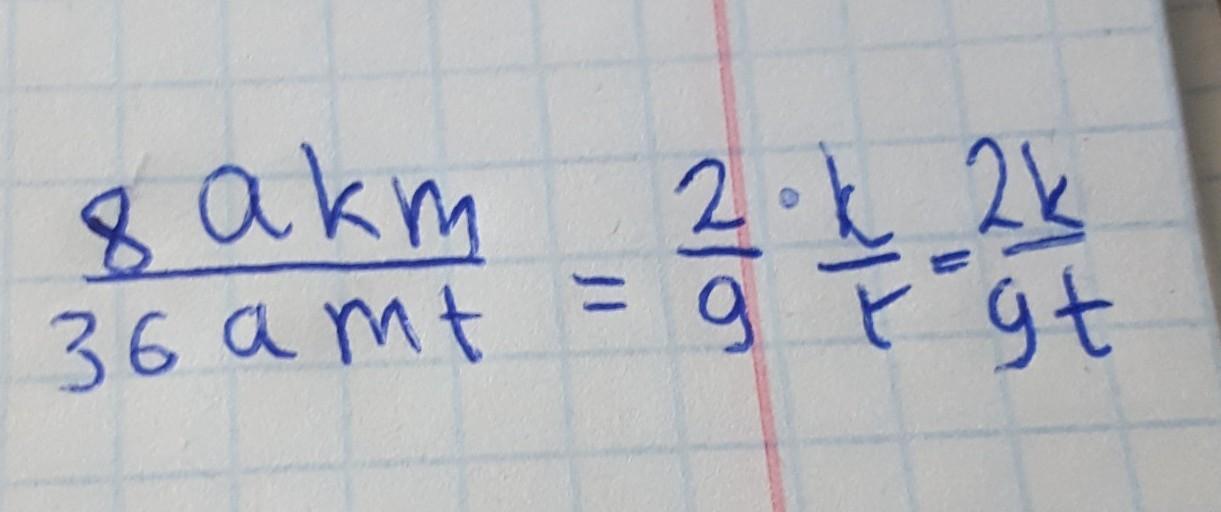 8akm/36amt = 2/9 · k/t = 2k/9t